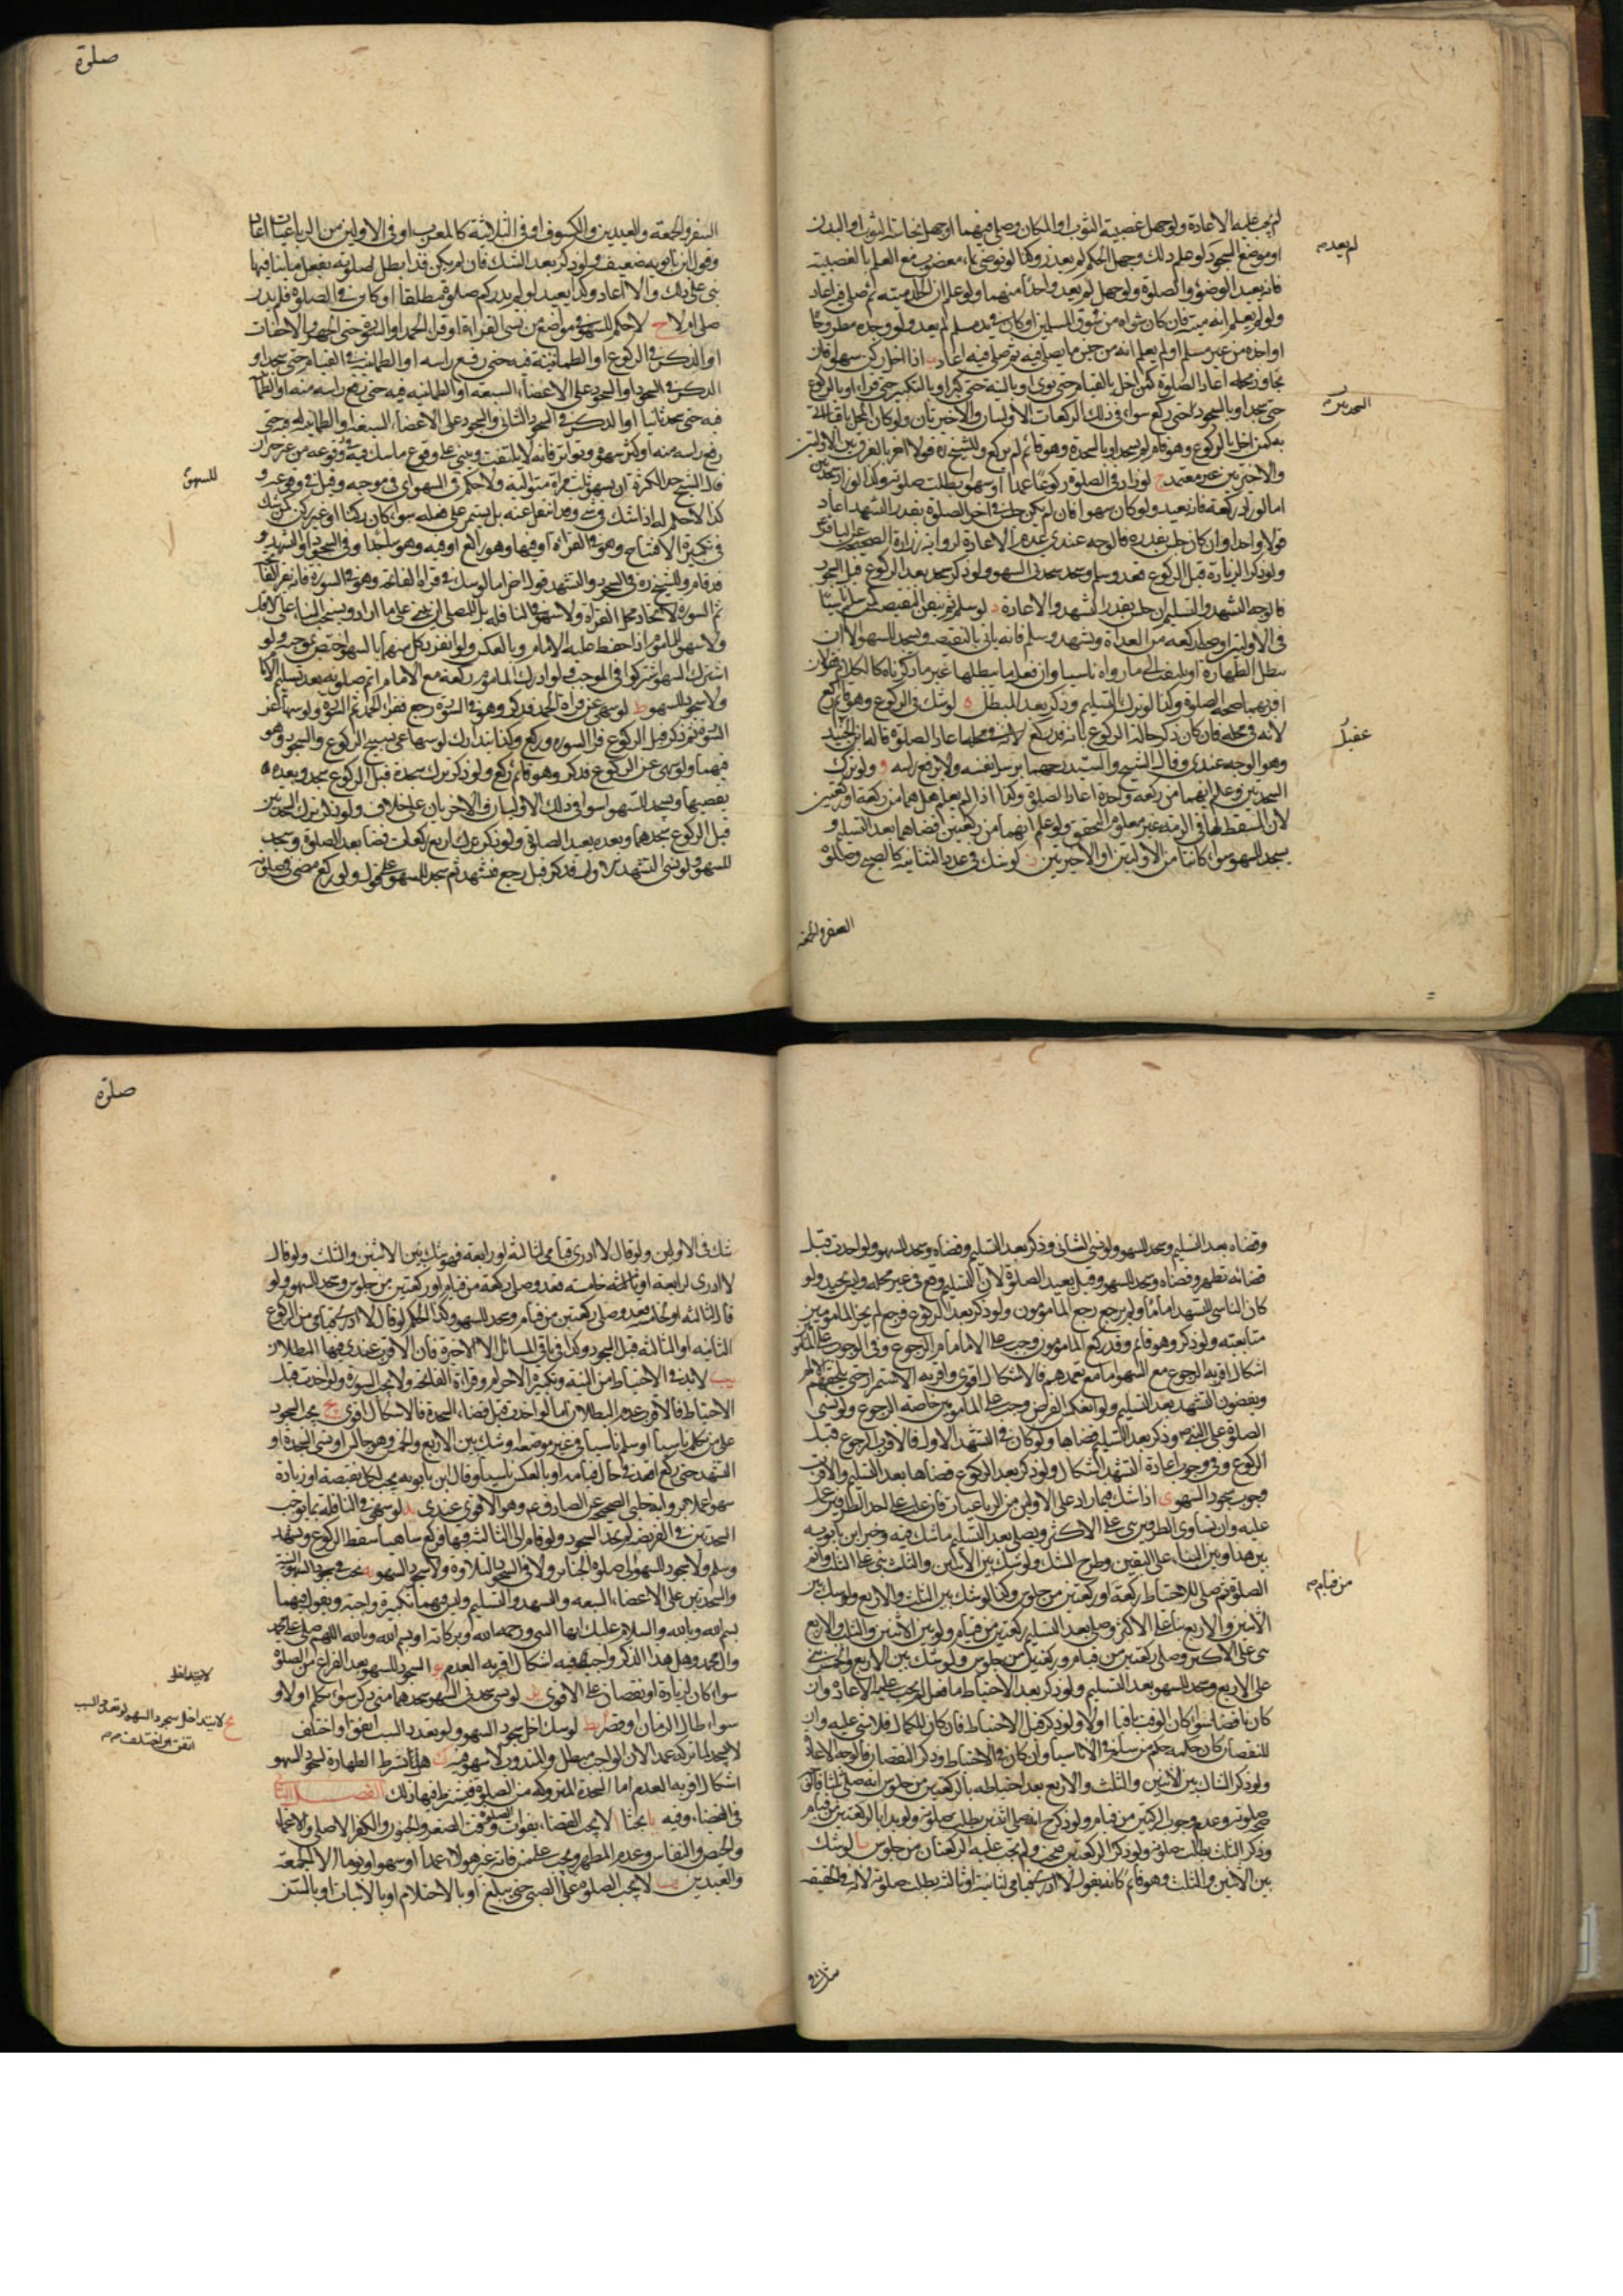 لم يجب عليه الاعادة ولو جهل غصبية الثوب او المكان وصلى فيهما او جهل نجاسة الثوب او البدن
او موضع السجود لو علم ذلك وجهل الحكم لم يعذر وكذا لو توضأ بماء مغصوب مع العلم بالغصبية
فانه يعيد الوضوء والصلوة ولو جهل لم يعد واحدا منهما ولو علم ان الجلد ميتة ثم صلى فيه اعاد
ولو لم يعلم انه ميت فان كان شراه من سوق المسلمين او كان في يد مسلم لم يعد ولو وجده مطروحا
او اخذه من غير مسلم او لم يعلم انه من جنس ما يصلى فيه ثم صلى فيه اعاد ب اذا اخل بركن سهوا فان
تجاوز محله اعاد الصلوة كمن اخل بالقيام حتى نوى او بالنية حتى كبر او بالتكبير حتى قرأ او بالركوع
حتى سجد او بالسجود حتى ركع سواء في ذلك الركعات الاوليان والاخيرتان ولو كان المحل باقيا اتى
به كمن اخل بالركوع وهو قائم لم يسجد او بالسجدة وهو قائم لم يركع وللشيخ ره قول اخر بالفرق بين الاولتين
والاخيرتين غير معتمد ج لو زاد في الصلوة ركوعا عمدا او سهوا بطلت صلوته وكذا لو زاد سجدتين
اما لو زاد ركعة فانه يعيد ولو كان سهوا فان لم يكن جلس في اخر الصلوة بقدر التشهد اعاد
قولا واحدا وان كان جلس بقدره فالوجه عندي عدم الاعادة لرواية زرارة الصحيحة عن الباقر ع
ولو ذكر الزيادة قبل الركوع قعد وسلم وسجد سجدتي السهو ولو ذكر بعد الركوع قبل السجود
فالوجه التشهد والتسليم ان جلس بقدر التشهد والا اعادة د لو سلم ثم تيقن النقيصة كمن سلم ناسيا
في الاوليين او صلى ركعة من الغداة وتشهد وسلم فانه ياتي بالنقيصه ويسجد للسهو الا ان
يبطل الطهارة او يلتفت الى ما رواه ناسيا وان فعل ما يبطلها غير ما ذكرناه كالكلام فقولان
اقربهما صحة الصلوة وكذا لو ترك التسليم وذكر بعد المبطل ه لو شك في الركوع وهو قائم ركع
لانه في محله فان كان ذكر حالة الركوع بانه قد ركع اعاد الصلوة قاله ابن ابي الجنيد
وهو الوجه عندي وقال الشيخ والسيد رحمهما الله يرسل نفسه ولا يرفع راسه و ولو ترك
السجدتين وعلم انهما من ركعة واحدة اعاد الصلوة وكذا اذا لم يعلم هل هما من ركعة او ركعتين
لان المسقط لما في الذمة غير معلوم التحقق ولو علم انهما من ركعتين قضاهما بعد التسليم و
يسجد للسهو سواء كانتا من الاوليتين او الاخيرتين ز لو شك في عدد الثنائية كالصبح وصلوة
لم يعد م
السجدتين
عقيل
السفر والجمعة
صلوة
السفر والجمعة والعيدين والكسوف او في الثلاثية كالمغرب او في الاوليين من الرباعيات اعاد
وقول ابن بابويه ضعيف ولو ذكر بعد الشك فان لم يكن قد ابطل لصلوته بفعل ما ينافيها
بنى على ذلك والا اعاد وكذا يعيد لو لم يدر كم صلى مطلقا او كان في الصلوة فلم يدر
صلى ام لا ح لا حكم للسهو في مواضع من نسى القراءة او قرا الحمد او السورة حتى الجهر والاخفات
او الذكر في الركوع او الطمأنينة فيه حتى رفع راسه او الطمأنينة في القيام حتى سجد او
الذكر في السجود او السجود على الاعضاء السبعة او الطمانينه فيه حتى رفع راسه منه او الطمأ
فيه حتى سجد ثانيا او الذكر في السجود الثاني والسجود على الاعضاء السبعة او الطمانينه فيه حتى
رفع راسه منه او كثر سهوه وتواتر فانه لا يلتفت ويبني على وقوع ما شك فيه
قال الشيخ حد الكثرة ان يسهو ثلث مراة متوالية ولا حكم في السهو اي في موجبه وقيل
كذا لا حكم له اذا شك في شئ وقد انتقل عنه بل يستمر على فعله سواء كان ركنا او غير ركن كمن شك
في تكبيرة الافتتاح وهو في القراءة او فيها وهو راكع او فيه وهو ساجد او في السجود او التشهد و
قد قام وللشيخ ره في السجود والتشهد قول اخر اما لو شك في قراة الفاتحة وهو في السورة فانه يقرأ الفا
ثم السورة لاتحاد محل القراءة ولا سهو في النافله بل للمصلي ان يبني على ما اراد ويستحب البناء على الاقل
ولا سهو للماموم اذا حفط عليه الامام وبالعكس ولو انفرد كل منهما بالسهو اختص بموجبه ولو
اشترك السهو اشتركوا في الموجب ولو ادرك الماموم ركعة مع الامام اتم صلوته بعد تسليم الاما
ولا سجود للسهو ط لو سهى عن قراءة الحمد فذكر وهو في السورة رجع فقرا الحمد ثم السورة ولو سها عن
السورة فذكر قبل الركوع قرأ السورة وركع وكذا يتدارك لو سها عن تسبيح الركوع والسجود وهو
فيهما ولو سهى عن الركوع فذكر وهو قائم ركع ولو ذكر ترك سجدة قبل الركوع سجد وبعده
يقضيها ويسجد للسهو سواء في ذلك الاوليان والاخريان على خلاف ولو ذكر ترك السجدتين
قبل الركوع سجدهما وبعده يعيد الصلوة ولو ذكر ترك اربع من اربع ركعات قضاها بعد الصلوة وسجد
للسهو ولو نسى التشهد الاول فذكر قبل رجع فتشهد ثم سجد للسهو على قول ولو ركع مضى في صلوته
للسهو
وقضاه بعد التسليم وسجد للسهو ولو نسي الثاني وذكر بعد التسليم وقضاه وسجد للسهو ولو احدث قبل
قضائه تطهر وقضاه وسجد للسهو وقيل يعيد الصلوة لان التسليم وقع في غير محله وليس بجيد ولو
كان الناسي للتشهد اماما ولم يرجع رجع المامومون ولو ذكر بعد الركوع فرجع لم يجز للمامومين
متابعته ولو ذكر وهو قائم وقد ركع المامومون وجب على الامام الرجوع وفي الوجوب على المامومين
اشكال اقربه الرجوع مع السهو اما مع تعمدهم فالاشكال اقوى واقربه الاستمرار حتى يلحقهم الامام
ويقضون التشهد بعد التسليم ولو انعكس الفرض وجب على المامومين خاصة الرجوع ولو نسى
الصلوة على النبي ص وذكر بعد التسليم قضاها ولو كان في التشهد الاول فالاقرب الرجوع قبل
الركوع وفي وجوب اعادة التشهد اشكال ولو ذكر بعد الركوع قضاها بعد التسليم والاقرب
وجوب سجود السهو ى اذا شك فيما زاد على الاوليين من الرباعيات فان غلب على احد الطرفين عمل
عليه وان تساوى الطرفين بنى على الاكثر ويصلى بعد التسليم ما شك فيه وخير ابن بابويه
بين هذا وبين البناء على اليقين وطرح الشك ولو شك بين الاثنين والثلث بنى على الثلث واتم
الصلوة ثم صلى للاحتياط ركعة او ركعتين من جلوس وكذا لو شك بين الثلث والاربع ولو شك بين
الاثنين والاربع بنى على الاكثر وصلى بعد التسليم ركعتين من قيام ولو بين الاثنين والثلث والاربع
بنى على الاكثر وصلى ركعتين من قيام وركعتين من جلوس ولو شك بين الاربع والخمس بنى
على الاربع وسجد للسهو بعد التسليم ولو ذكر بعد الاحتياط ما فعل لم يجب عليه الاعادة وان
كان ناقضا سواء كان الوقت باقيا اولا ولو ذكر قبل الاحتياط فان كان للكمال فلا شئ عليه وان
للنقصان كان حكمه حكم من سلم في الاثنا ناسيا وان كان في الاحتياط وذكر النقصان فالوجه الاعادة
ولو ذكر الشاك بين الاثنين والثلث والاربع بعد احتياطه بالركعتين من جلوس انه صلى ثلثا فالاقوى
صحة صلوته وعدم وجوب الركعتين من قيام ولو ذكر ح انه صلى اثنتين بطلت صلوته ولو بدأ بالركعتين من قيام
وذكر الثلث بطلت صلوته ولو ذكر الركعتين صحت ولم يجب عليه الركعتان من جلوس يا لو شك
بين الاثنين والثلث وهو قائم كانه يقول لا ادري قيامي لثانية او ثالثة بطلت صلوته لانه في الحقيقة
من قيام م
شك في
صلوة
شك في الاولين ولو قال لا ادري قيامي لثالثة او رابعة فهو شك بين الاثنين والثلث ولو قال
لا ادري لرابعة او خامسه قعد وصلى ركعة من قيام او ركعتين من جلوس وسجد للسهو ولو
قال لثالثه او خامسه قعد وصلى ركعتين من قيام وسجد للسهو وكذا الحكم لو قال لا ادري قيامي من الركوع
الثانيه او الثالثه قبل السجود وكذا في باقي المسائل الا الاخيرة فان الاقرب عندي فيها البطلان
يب لابد في الاحتياط من النية وتكبيرة الاحرام وقراءة الفاتحة ولا تجب السورة ولو احدث قبل
الاحتياط فالاقوى عدم البطلان اما لو احدث قبل قضاء السجدة فالاشكال اقوى يج يجب السجود
على من تكلم ناسيا او سلم ناسيا في غير موضعه او شك بين الاربع والخمس وهو جالس او نسى السجدة او
التشهد حتى ركع او قعد في حال قيامه او بالعكس ناسيا وقال ابن بابويه يجب لكل نقيصة او زيادة
سهوا عملا برواية حلبي الصحيحة عن الصادق ع وهو الاقوى عندي يد لو سهى في النافلة بما يوجب
السجدتين في الفريضة لم يجب السجود ولو قام الى الثالثة فيها فركع ساهيا اسقط الركوع وتشهد
وسلم ولا سجود للسهو في صلوة الجنائز ولا في سجود التلاوة ولا سجود السهو يه يجب في سجود السهو النية
والسجدتين على الاعضاء السبعه والتشهد والتسليم وليس فيهما تكبيرة واجبة ويقول فيهما
بسم الله وبالله والسلام عليك ايها النبي ورحمة الله وبركاته او بسم الله وبالله اللهم صل على محمد
وال محمد وهل هذا الذكر واجب فيه اشكال اقربه العدم يو السجود للسهو بعد الفراغ من الصلوة
سواء كان لزيادة او نقصان على الاقوى يز لو نسى سجدتي السهو سجدهما متى ذكر سواء تكلم اولا و
سواء طال الزمان او قصر يط لو شك اخل بسجود السهو ولو تعدد السبب اتفق او اختلف
لا يسجد لما تركه عمدا لان الواجب مبطل والمندوب لا سهو فيه ك هل يشترط الطهارة لسجود السهو
اشكال اقربه العدم اما السجدة المتروكة من الصلوة فيشترط فيها ذلك الفصل
في القضاء وفيه يا بحثا ا لا يجب القضاء بفوات الصلوة وقت الصغر والجنون والكفر الاصلي والاغما
والحيض والنفاس وعدم المطهر ويجب على من فاته غير هؤلاء عمدا او سهوا او نوما الا الجمعة
والعيدين ب لا يجب الصلوة على الصبي حتى يبلغ او بالاحتلام او بالانبات او بالسن
لا يتداخل
يح لا يتداخل سجود السهو لو تعدد السبب
اتفق او اختلف م م